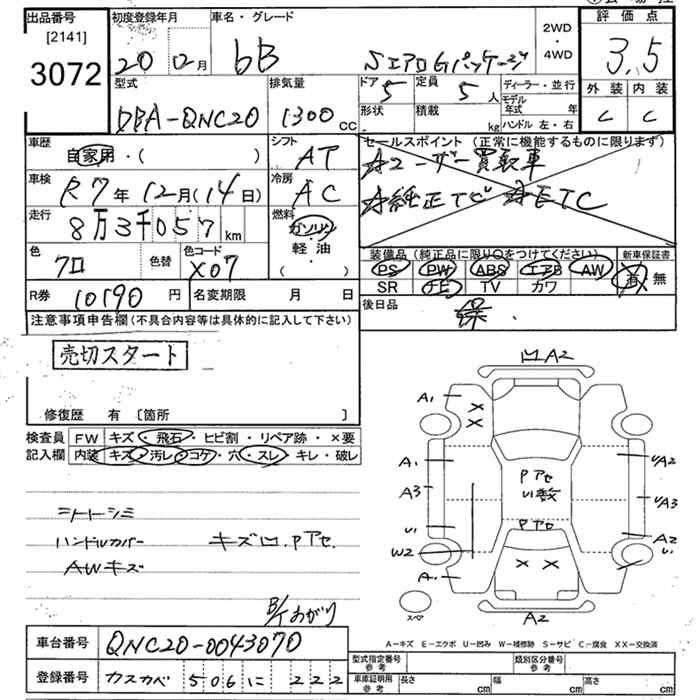 出品番号 初度登録年月 車名・グレード 2WD・4WD 評価点
[2141]
3072 20 0月 bB SエアロGパッケージ 3.5
型式 排気量 ドア 5 定員 5人 ディーラー・並行 外装 内装
DBA-QNC20 1300cc 形状 積載 kg モデル年式 年 C C
ハンドル 左・右
車歴 自家用・( ) シフト AT セールスポイント (正常に機能するものに限ります)
Aユーザー買取車
車検 R7年12月(14日) 冷房 AC A純正TV AETC
走行 8万3千057km 燃料 ガソリン・軽油( )
装備品(純正品に限り○をつけてください) 新車保証書
色 クロ 色替 色コード X07 PS PW ABS エアB AW 有 無
SR ナビ TV カワ
R券 10190円 名変期限 月 日 後日品 保
注意事項申告欄(不具合内容等は具体的に記入して下さい)
売切スタート
修復歴 有 [箇所 ]
検査員記入欄 FW キズ・飛石・ヒビ割・リペア跡・×要
内装 キズ・汚レ・コゲ・穴・スレ・キレ・破レ
シートシミ
ハンドルカバー キズ凹.Pアセ.
AWキズ
B/Tあがり
凹A2
A1
X
X
A1 U/A2
Pアセ
U1数
A3 U/A3
Pアセ
U1 A2
W2 U1
X X
A1
スペア
A2
A-キズ E-エクボ U-凹み W-補修跡 S-サビ C-腐食 XX-交換済
車台番号 QNC20-0043070
型式指定番号 参考 類別区分番号 参考
登録番号 カスカベ 506 に 222
車庫証明用 参考 長さ cm 幅 cm 高さ cm